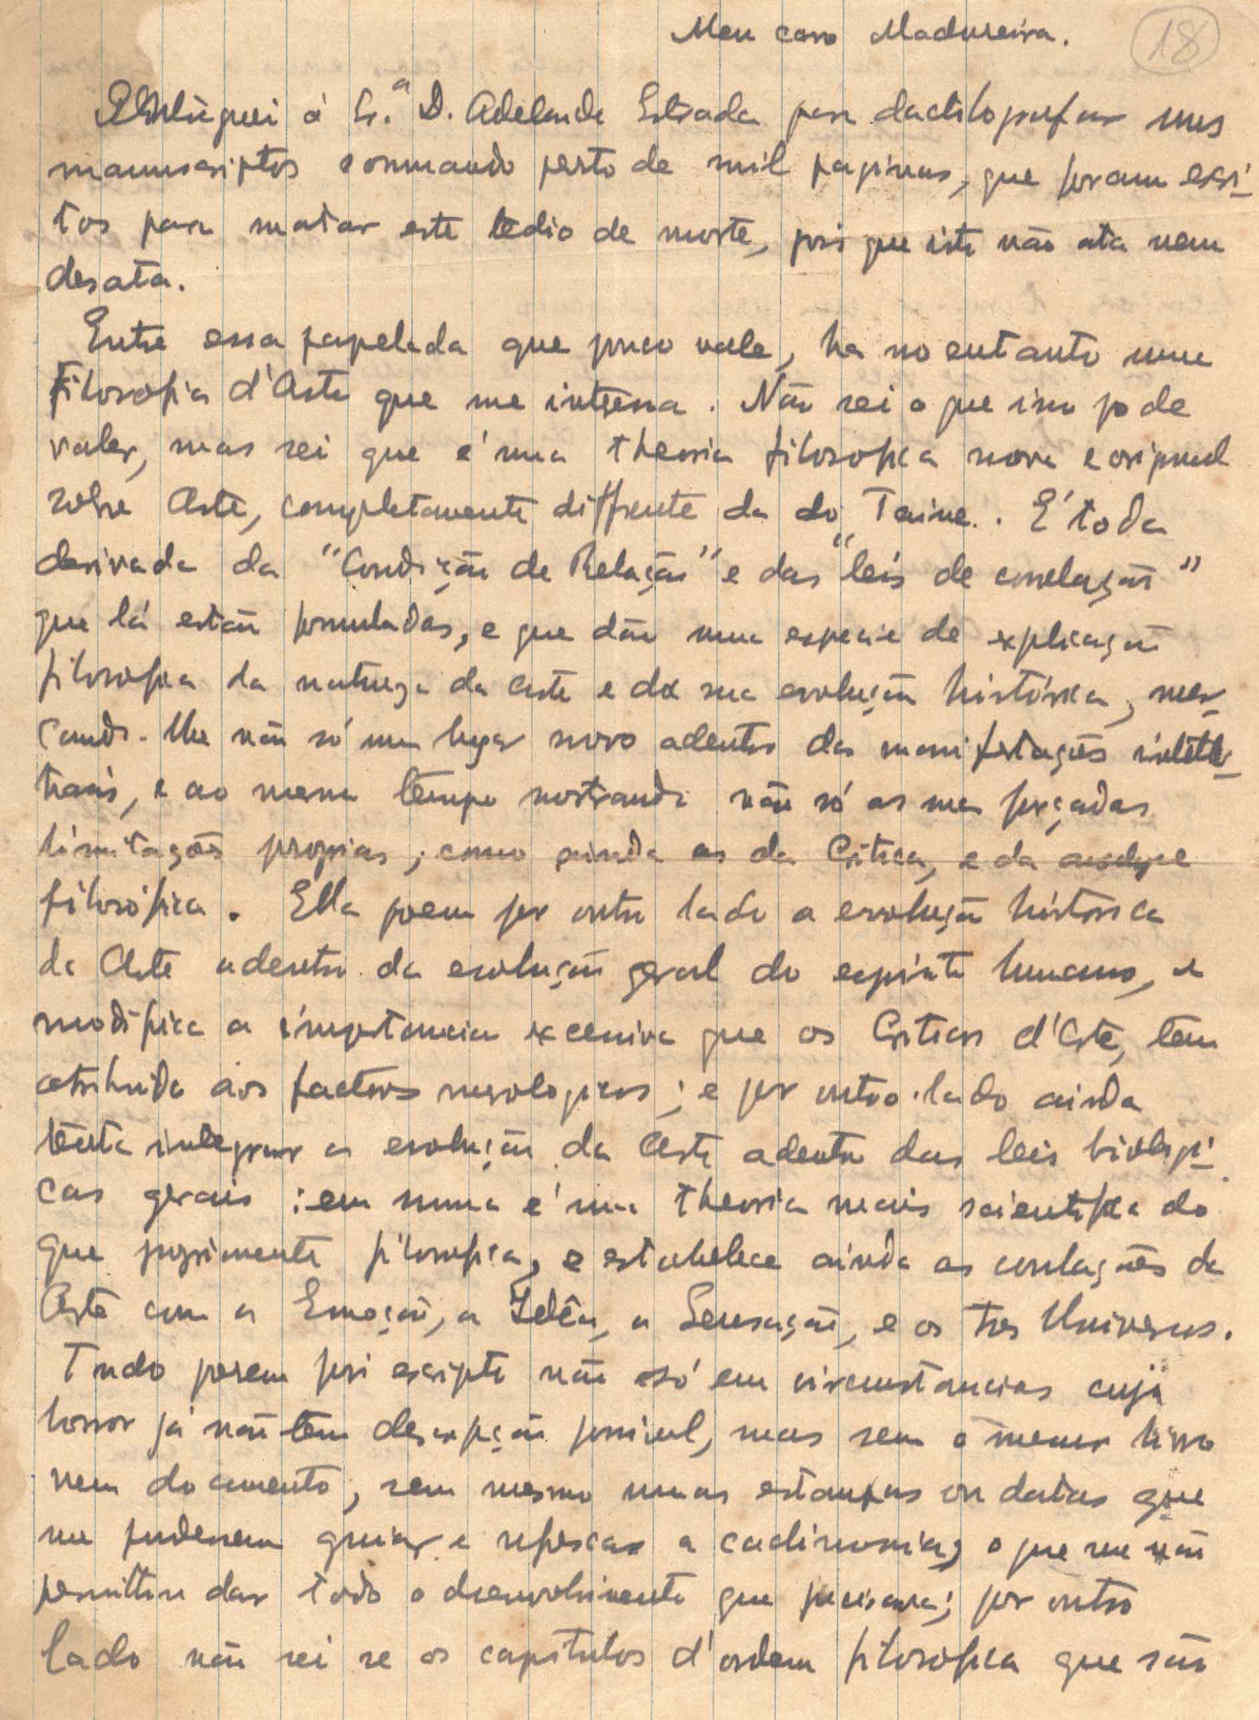 Meu caro Madureira.
18
Entreguei á Sr.ª D. Adelaide Estrada para dactilografar uns
manuscriptos sommando perto de mil paginas, que foram escri-
tos para matar este tedio de morte, pois que isto não ata nem
desata.
Entre essa papelada que pouco vale, ha no entanto uma
Filosofia d'Arte que me interessa. Não sei o que isso pode
valer, mas sei que é uma theoria filosofica nova e original
sobre Arte, completamente diffrente da do Taine. É toda
derivada da "Condição de Relação" e das "leis de correlação"
que lá estão formuladas, e que dão uma especie de explicação
filosofica da natureza da arte e da sua evolução histórica, mar-
cando-lhe não só um lugar novo adentro das manifestações intele-
tuais, e ao mesmo tempo mostrando não só as suas forçadas
limitações proprias, como ainda as da Critica, e da analyse
filosófica. Ella poem por outro lado a evolução histórica
da Arte adentro da evolução geral do espirito humano, e
modifica a importancia excessiva que os Criticos d'Arte, têm
atribuido aos factores mesologicos; e por outro lado ainda
tenta integrar a evolução da Arte adentro das leis biologi-
cas gerais: em suma é uma theoria mais scientifica do
que propriamente filosofica, e estabelece ainda as correlações da
Arte com a Emoção, a Idêa, a Sensação, e os Tres Universos.
Tudo porem foi escripto não só em circumstancias cujo
horror já não tem descripção possivel, mas sem o menor livro
nem documento, sem mesmo umas estampas ou datas que
me pudessem guiar e refrescar a cachimonia, o que me não
permittiu dar todo o desenvolvimento que precisava; por outro
lado não sei se os capitulos d'ordem filosofica que são